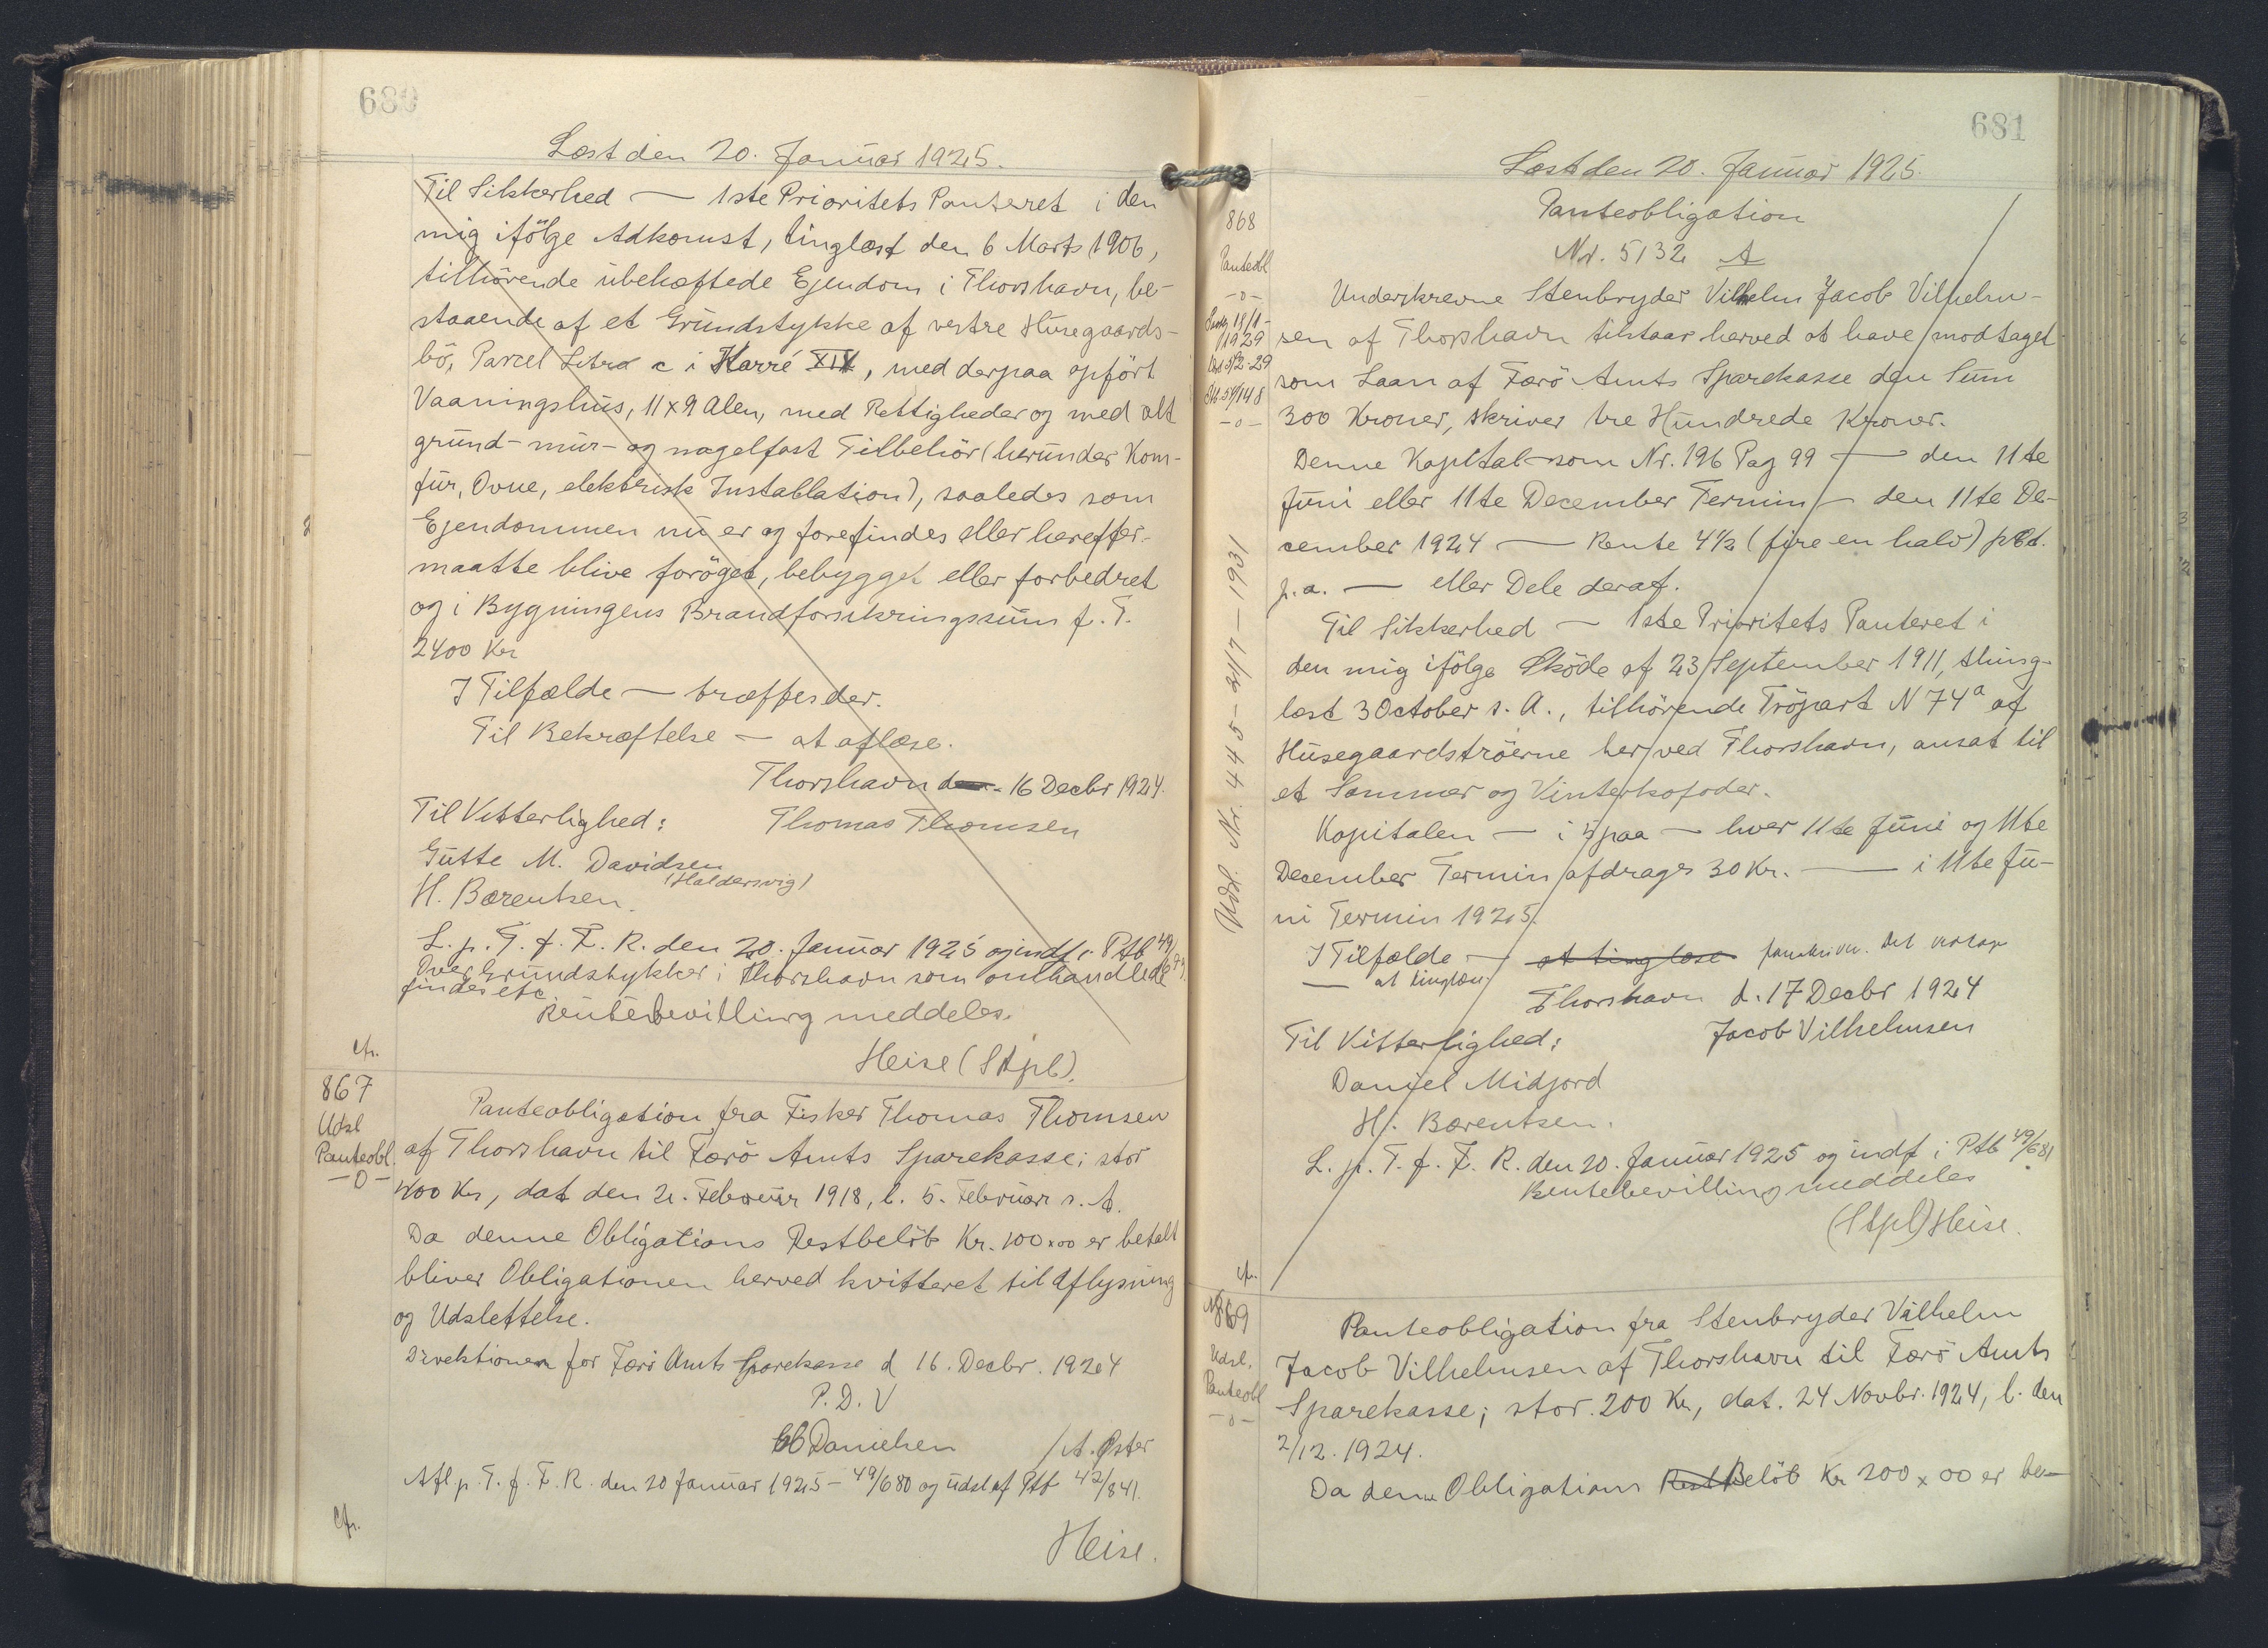 680
Læst den 20. Januar 1925.
Til Sikkerhed — 1ste Prioritets Panteret i den
mig ifölge Adkomst, tinglæst den 6 Marts 1906,
tilhörende ubehæftede Ejendom i Thorshavn, be-
staaende af et Grundstykke af vestre Husegaards-
bö, Parcel Litra c i Karré XIV, med derpaa opfört
Vaaningshus, 11 x 9 Alen, med Rettigheder og med alt
grund- mur- og nagelfast Tilbehör (herunder Kom-
fur, Ovne, elektrisk Installation), saaledes som
Ejendommen nu er og forefindes eller herefter
maatte blive foröget, bebygget eller forbedret
og i Bygningens Brandforsikringssum f. T.
2400 Kr
I Tilfælde — træffes der.
Til Bekræftelse — at aflæse.
Thorshavn den 16 Decbr 1924.
Til Vitterlighed: Thomas Thomsen
Gutte M. Davidsen
(Haldersvig)
H. Bærentsen.
L. p. T. f. F. R. den 20. Januar 1925 og indf. i Ptb 49/679.
Over Grundstykker i Thorshavn som omhandlede
findes etc.
Rentebevilling meddeles.
Heise (Stpl).
cfr.
867
Udsl
Panteobl.
—0—
Panteobligation fra Fisker Thomas Thomsen
af Thorshavn til Færö Amts Sparekasse; stor
400 Kr, dat den 2. Februar 1918, l. 5. Februar s. A.
Da denne Obligations Restbelöb Kr. 100 x 00 er betalt
bliver Obligationen herved kvitteret til Aflysning
og Udslettelse.
Direktionen for Færö Amts Sparekasse d 16. Decbr. 1924
P. D. V
Danielsen / A. Öster
Afl p. T. f. F. R. den 20 Januar 1925 - 49/680 og udsl af Ptb 42/841.
cfr.
Heise.
681
Læst den 20. Januar 1925.
868
Panteobl
—0—
1929
—0—
Udsl. Nr. 445 - 21/7 - 1931
Panteobligation
Nr. 5132 A
Underskrevne Stenbryder Vilhelm Jacob Vilhelm-
sen af Thorshavn tilstaar herved at have modtaget
som Laan af Færö Amts Sparekasse den Sum
300 Kroner, skriver tre Hundrede Kroner.
Denne Kapital som Nr. 196 Pag 99 — den 11te
Juni eller 11te December Termin — den 11te De-
cember 1924 — Rente 4½ (fire en halv) pCt.
p. a. — eller Dele deraf.
Til Sikkerhed — 1ste Prioritets Panteret i
den mig ifölge Sköde af 23 September 1911, thing-
læst 3 October s. A., tilhörende Tröpart N 74a af
Husegaardströerne her ved Thorshavn, ansat til
et Sommer og Vinterkofoder.
Kapitalen — i paa — hver 11te Juni og 11te
December Termin afdrages 30 Kr. — i 11te Ju-
ni Termin 1925.
I Tilfælde — at tinglæse
— at tinglæse
Thorshavn d. 17 Decbr 1924
Til Vitterlighed: Jacob Vilhelmsen
Daniel Midjord
H. Bærentsen.
L. p. T. f. F. R. den 20. Januar 1925 og indf i Ptb 49/681
Rentebevilling meddeles
(Stpl) Heise.
cfr.
869
Udsl.
Panteobl
—0—
Panteobligation fra Stenbryder Vilhelm
Jacob Vilhelmsen af Thorshavn til Færö Amts
Sparekasse; stor. 200 Kr, dat. 24 Novbr. 1924, l. den
2/12. 1924.
Da denne Obligations Rest Belöb Kr 200 x 00 er be-